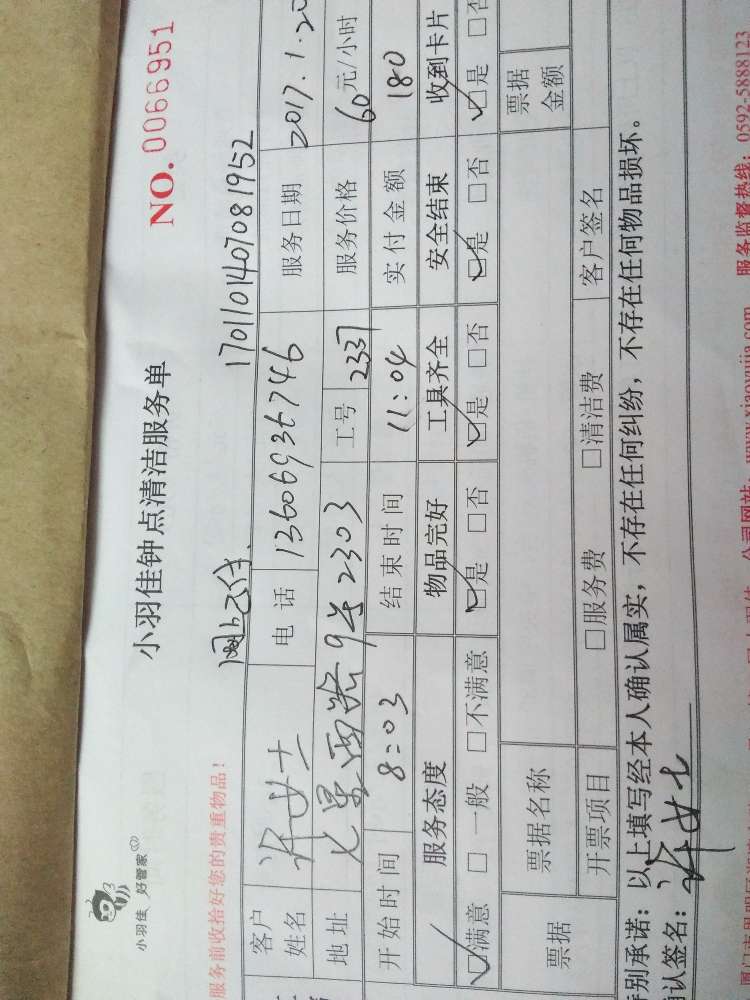 小羽佳 好管家
小羽佳钟点清洁服务单
NO. 0066951
服务前收拾好您的贵重物品!
网上已付
1701101407081952
客户姓名 许女士 电话 13606936746 服务日期 2017.1.20
地址 七星西路9号2303 工号 2337 服务价格 60元/小时
开始时间 8:03 结束时间 11:04 实付金额 180
服务态度 物品完好 工具齐全 安全结束 收到卡片
☑满意 □一般 □不满意 ☑是 □否 ☑是 □否 ☑是 □否 ☑是 □否
票据 票据名称 票据金额
开票项目 □服务费 □清洁费 客户签名
特别承诺: 以上填写经本人确认属实, 不存在任何纠纷, 不存在任何物品损坏。
确认签名: 许女士
公司网站: www.xiaoyujia.com 服务监督热线: 0592-5888123